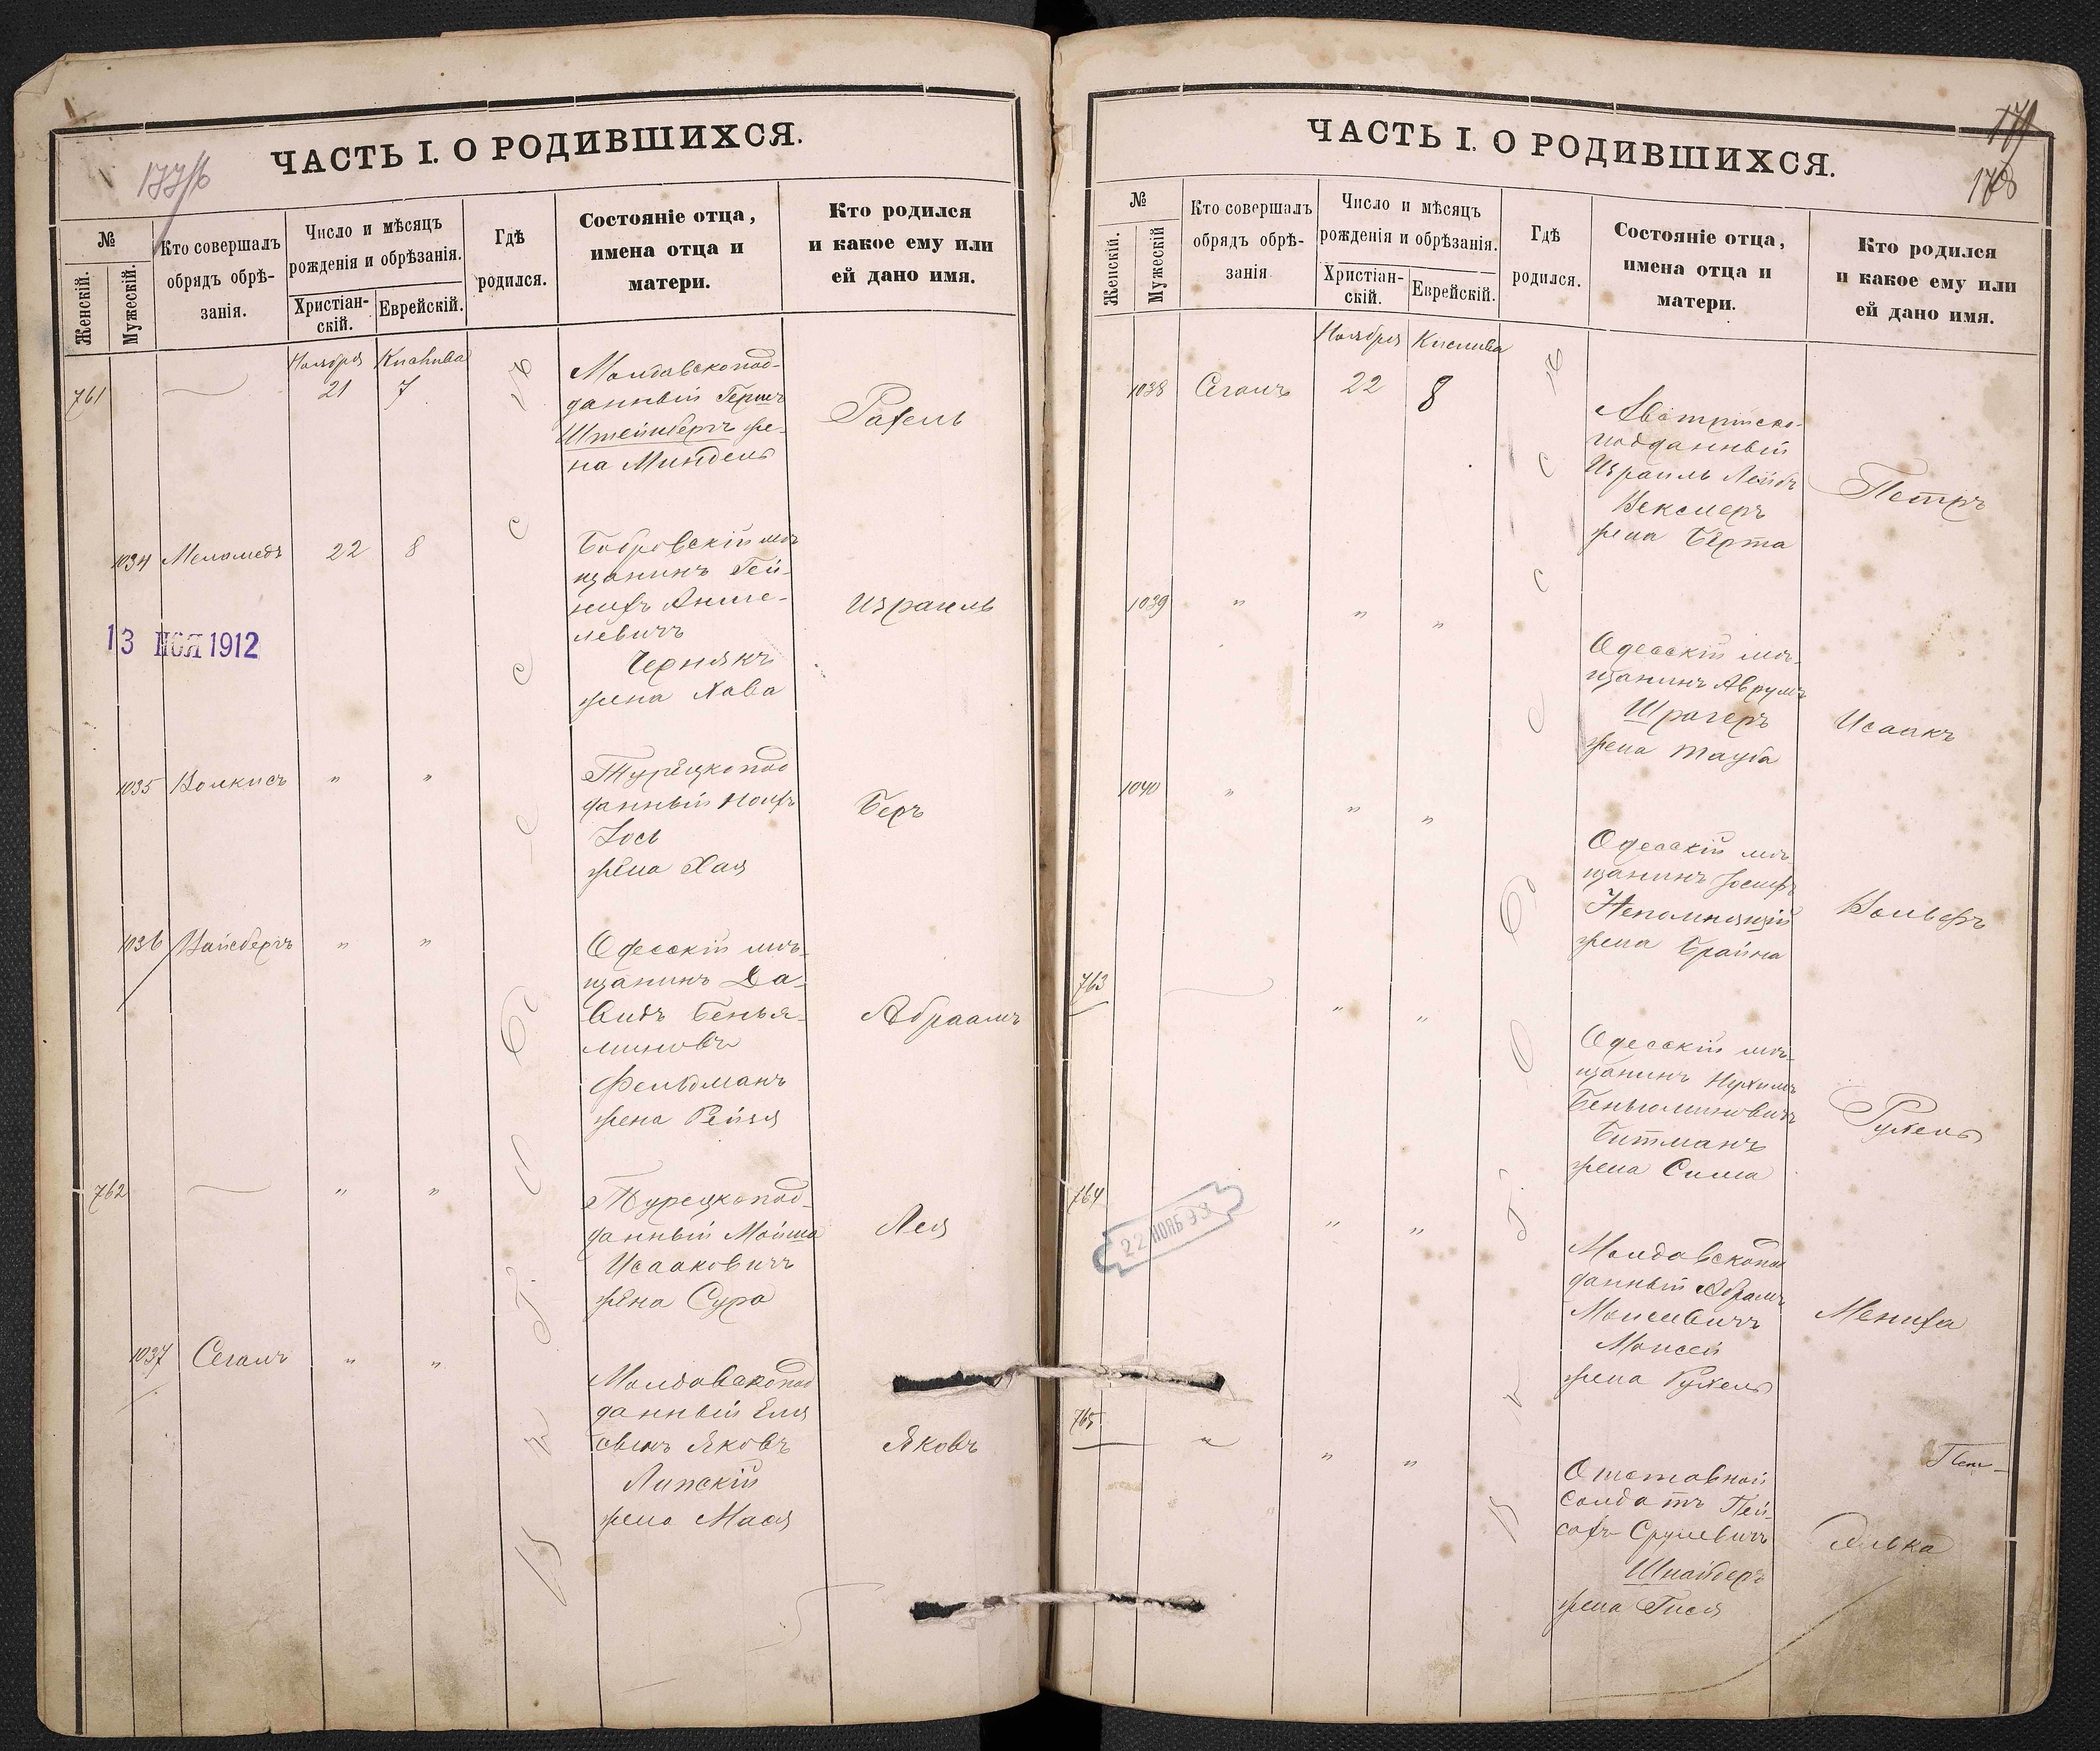 177/б
ЧАСТЬ I. О РОДИВШИХСЯ.
№
Женскій.
Мужескій.
Кто совершалъ
обрядъ обрѣ-
занія.
Число и мѣсяцъ
рожденія и обрѣзанія.
Христіан-
скій.
Еврейскій.
Гдѣ
родился.
Состояніе отца,
имена отца и
матери.
Кто родился
и какое ему или
ей дано имя.
Ноября
761
21
7
Молдавскопод-
данный Герш
Штейнбергъ же-
на Миндель
Рахель
1034
Меламедъ
22
8
Бобровскій мѣ
щанинъ Гей-
нихъ Анше-
левичъ
Чернякъ
жена Хава
Израиль
13 НОЯ 1912
1035
Волкисъ
"
"
Турецкопод
данный
Зось
жена Хая
Беръ
1036
Вайсбергъ
"
"
Одесскій мѣ-
щанинъ Да-
видъ Бенья-
миновъ
Фельдманъ
жена Рейзя
Абраамъ
762
"
"
Турецкопод-
данный Мойша
Исааковичъ
жена Сура
Лея
1037
Сегалъ
"
"
Молдавскопод
данный Еля
сынъ Яковъ
Липскій
жена Мася
Яковъ
178
ЧАСТЬ I. О РОДИВШИХСЯ.
№
Женскій.
Мужескій
Кто совершалъ
обрядъ обрѣ-
занія
Число и мѣсяцъ
рожденія и обрѣзанія.
Христіан-
скій.
Еврейскій.
Гдѣ
родился.
Состояніе отца,
имена отца и
матери.
Кто родился
и какое ему или
ей дано имя.
Ноября
Кислива
1038
Сегалъ
22
8
Австрійско-
подданный
Израиль Лейбъ
Векслеръ
жена Берта
Петръ
1039
"
"
"
Одесскій мѣ-
щанинъ Аврумъ
Шрагеръ
жена Тауба
Исаакъ
1040
"
"
"
Одесскій мѣ
щанинъ Іосифъ
Непомнящій
жена Брайна
Вольфъ
763
"
"
Одесскій мѣ-
щанинъ Нухимъ
Беньюминовичъ
Битманъ
жена Сима
Рухель
764
22 НОЯБ 93
"
"
Молдавскопод
данный Абрамъ
Моисеевичъ
Моисей
жена Рухель
Мениха
765
"
"
"
Отставной
солдатъ Пей-
сахъ Срулевичъ
Шнайдеръ
жена Гися